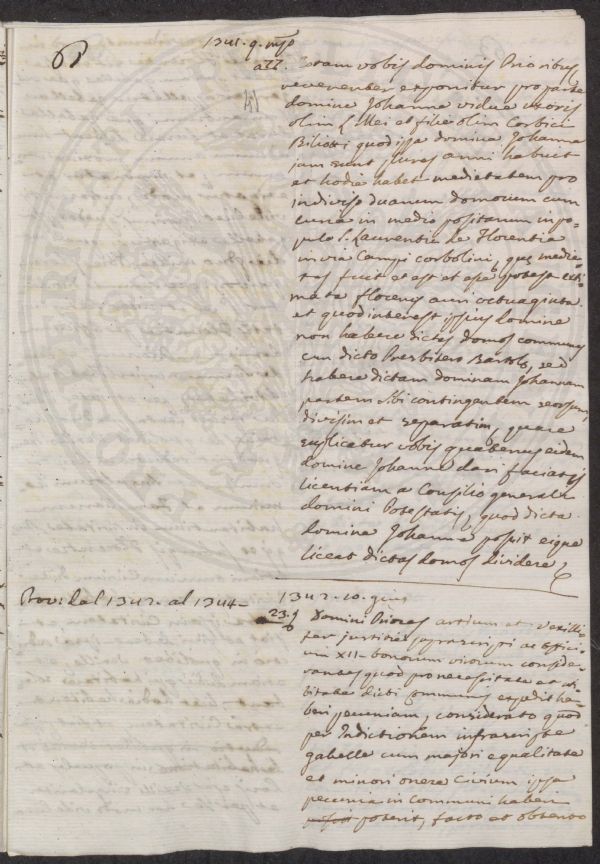 61
1341. 9. mģo
att. Coram vobis dominis Prioribus
reverenter exponitur pro parte
domine Johanne vidue uxoris
olim Mei et filie olim Corbici
Biliotti quod ipsa domina Johanna
jam sunt plures anni habuit
et hodie habet medietatem pro
indiviso duarum domorum cum
curia in medio positarum in po=
pulo S. Laurentii de Florentia
in via Campi Corbolini, que medie=
tas fuit et est et esse potest exti=
mata florenis auri octuaginta.
et quod interest ipsius domine
non habere dictas domos communes
cum dicto Presbitero Bartolo, sed
habere dictam dominam Johannam
partem sibi contingentem seorsum,
divisim et separatim, quare
suplicatur vobis quatenus eidem
domine Johanne dari faciatis
licentiam a Consilio generali
domini Potestatis, quod dicta
domina Johanna possit eique
liceat dictas domos dividere
Prov: dal 1342. al 1344.
1342. 10. giu
23. Domini Priores artium et Vexilli=
fer justitie suprascripti ac offici=
um XII. bonorum virorum conside=
rantes quod pro necessitate et de=
bitate dicti Communis expedit ha=
beri pecuniam, considerato quod
per Indictionem infrascripte
gabelle cum majori equalitate
et minori onere Civium ipsa
pecunia in Communi haberi
poterit, facto et obtento